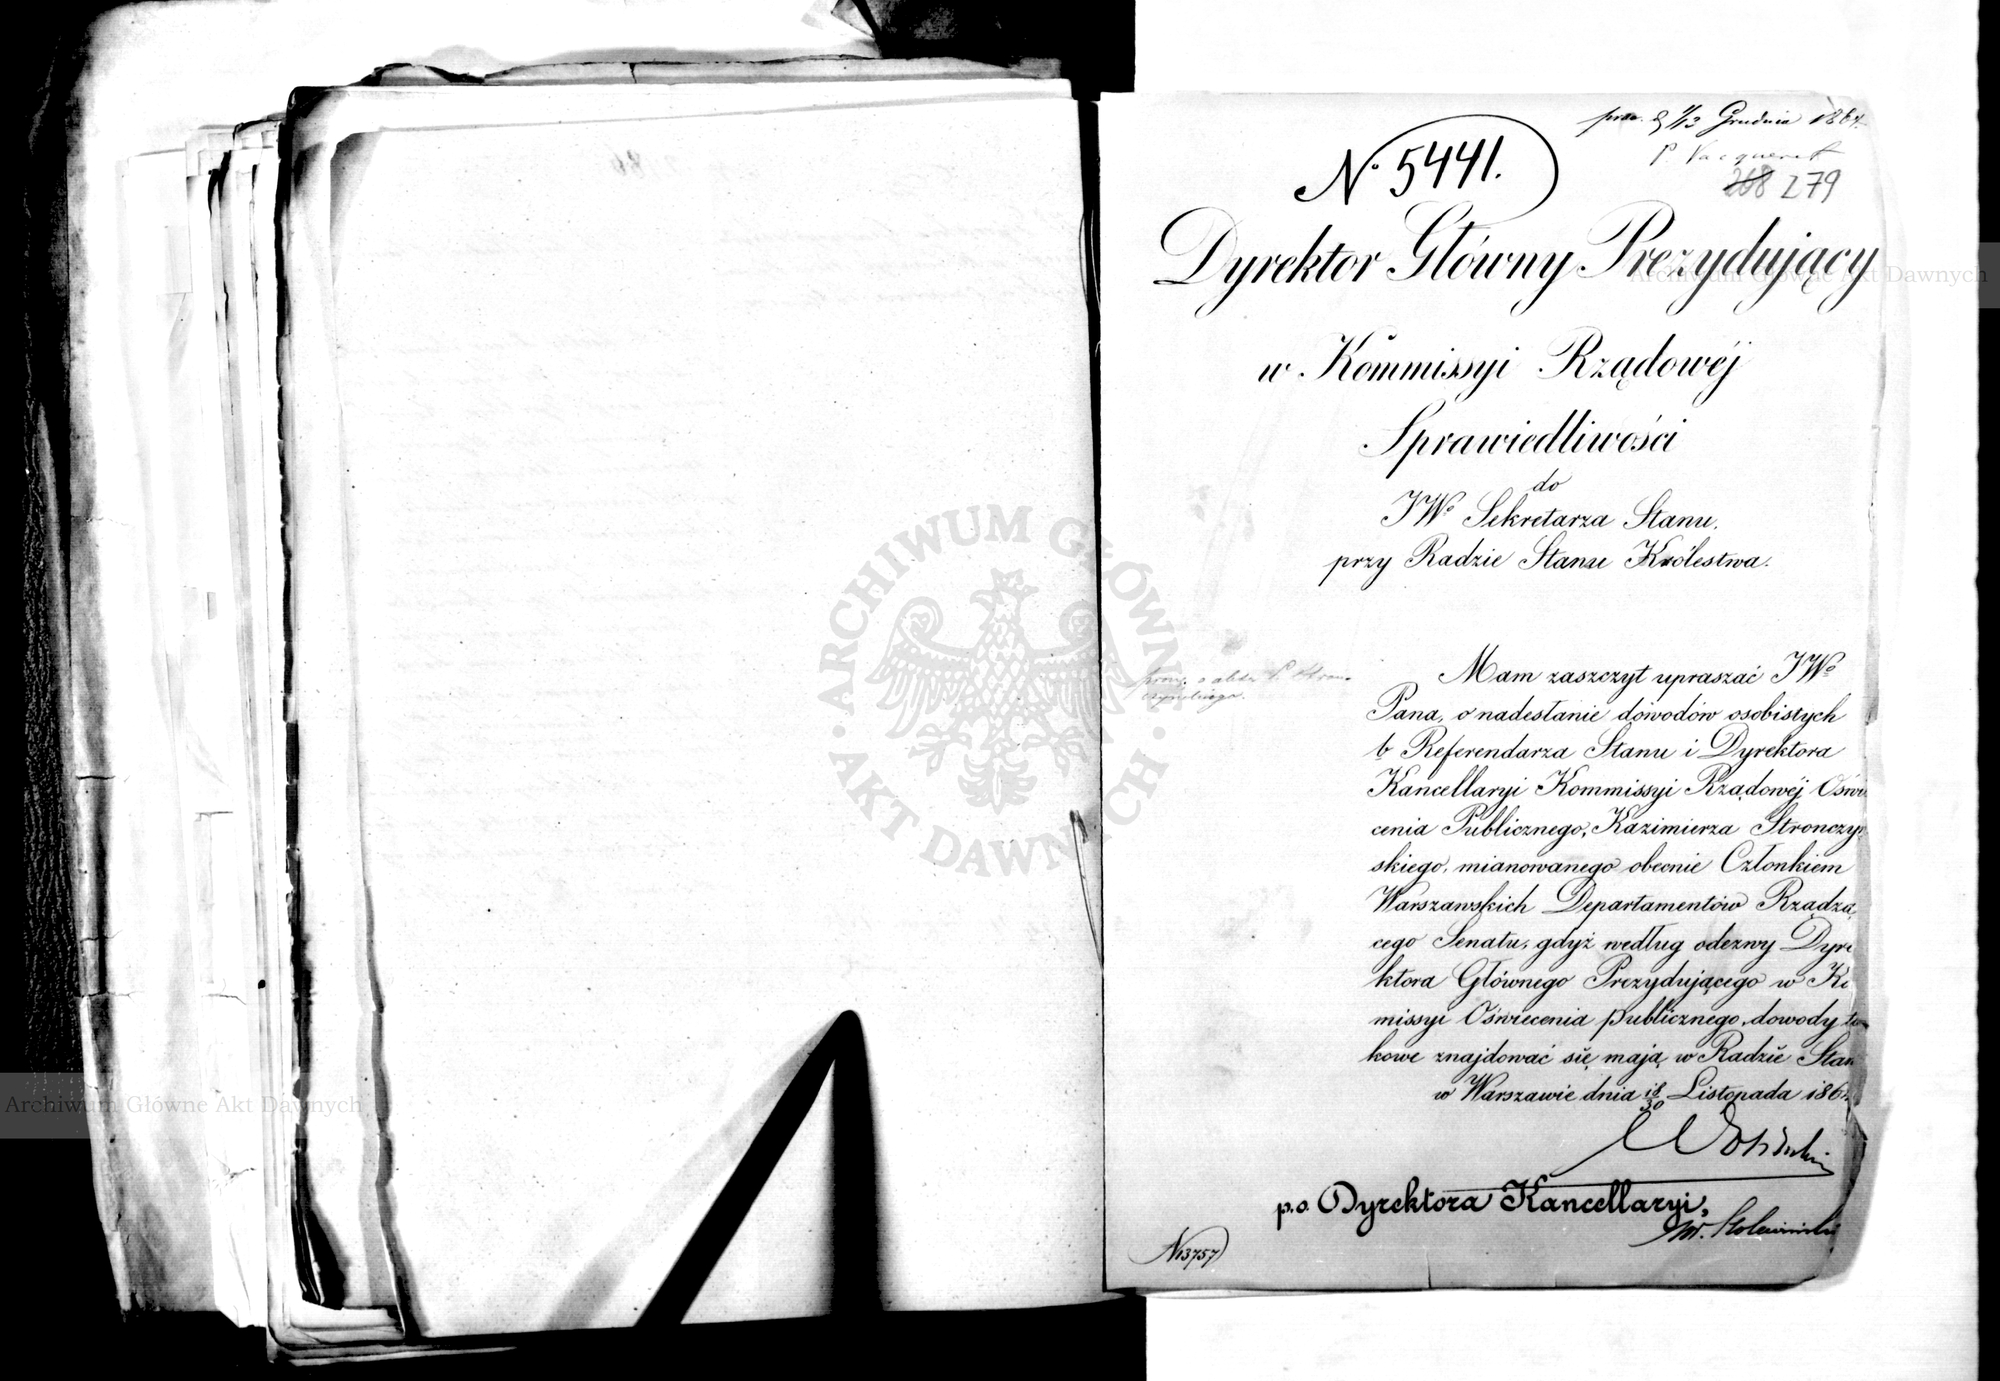 pres. d 1/13 Grudnia 1864.
P. Vacqueret
268 279
No 5441.
Dyrektor Główny Prezydujący
w Kommissyi Rządowéj
Sprawiedliwości
do
JWo Sekretarza Stanu.
przy Radzie Stanu Królestwa.
Mam zaszczyt upraszać JWo
Pana, o nadesłanie dowodów osobistych
b Referendarza Stanu i Dyrektora
Kancellaryi Kommissyi Rządowéj Oświe
cenia Publicznego, Kazimierza Stronczyń
skiego, mianowanego obecnie Członkiem
Warszawskich Departamentów Rządzą
cego Senatu, gdyż według odezwy Dyre
ktora Głównego Prezydującego w Ko
missyi Oświecenia publicznego, dowody ta
kowe znajdować się mają w Radzie Stan
w Warszawie dnia 18/30 Listopada 1864
p.o. Dyrektora Kancellaryi,
N13757
ARCHIWUM GŁÓWNE
AKT DAWNYCH
Archiwum Główne Akt Dawnych
Archiwum Główne Akt Dawnych